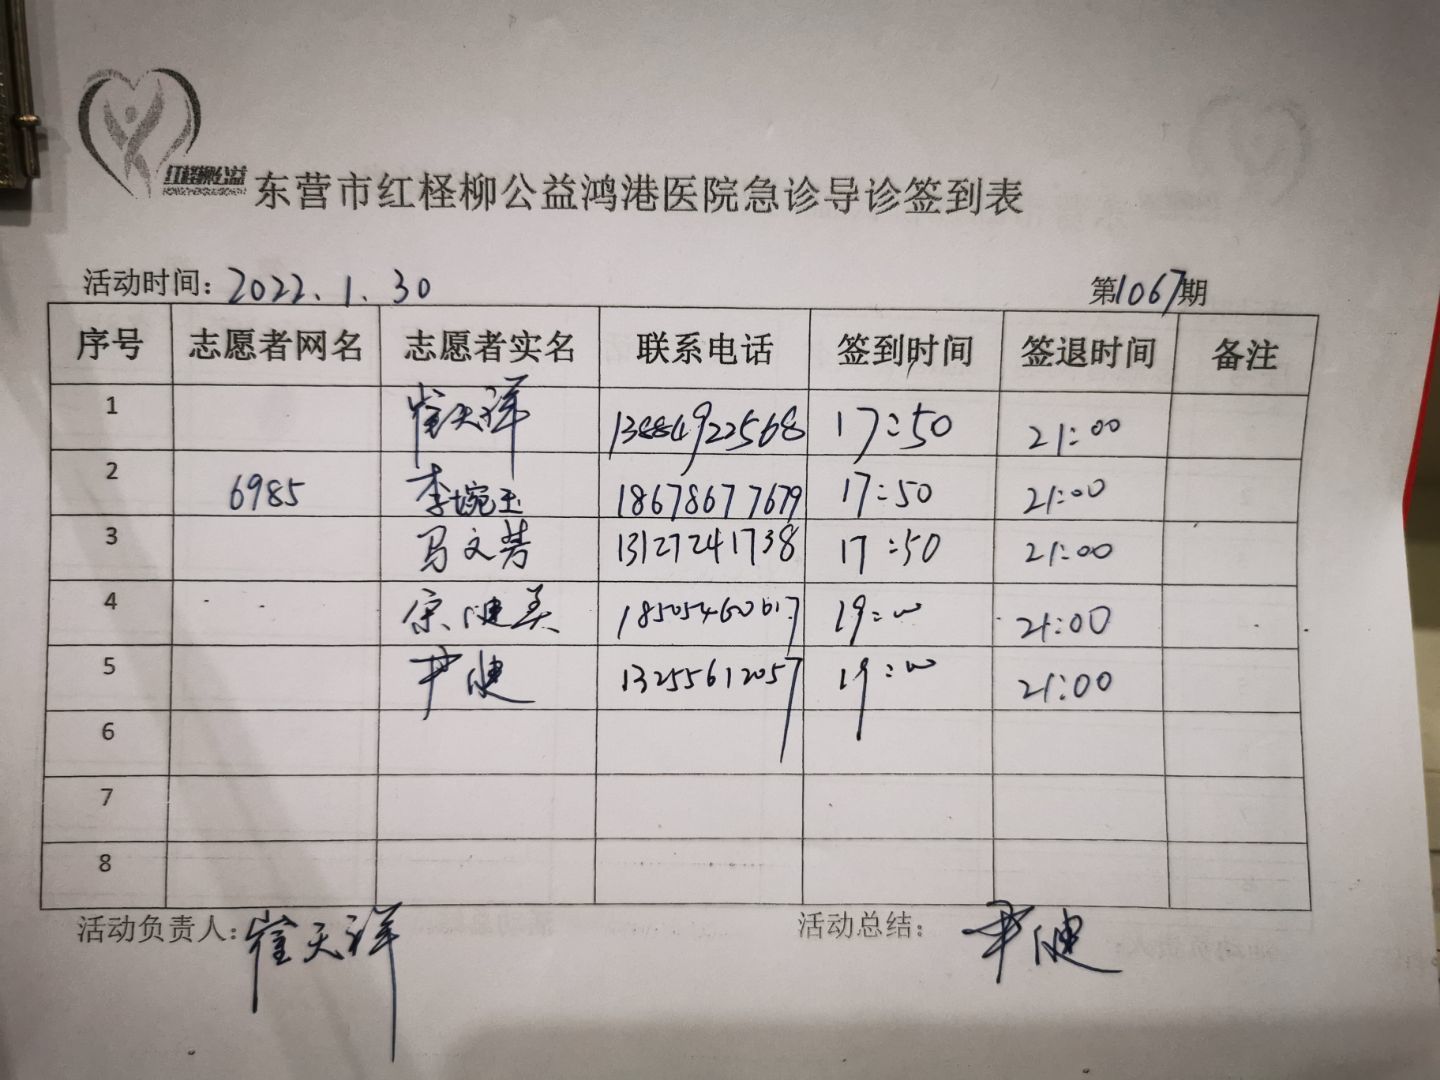 红柽柳公益
东营市红柽柳公益鸿港医院急诊导诊签到表
活动时间：2022.1.30 第1067期
序号 志愿者网名 志愿者实名 联系电话 签到时间 签退时间 备注
1 崔天祥 13884922568 17:50 21:00
2 6985 李婉玉 18678677679 17:50 21:00
3 马文芳 13127241738 17:50 21:00
4 宗健美 18505460617 19:00 21:00
5 尹健 13255612057 19:00 21:00
6
7
8
活动负责人：崔天祥 活动总结：尹健